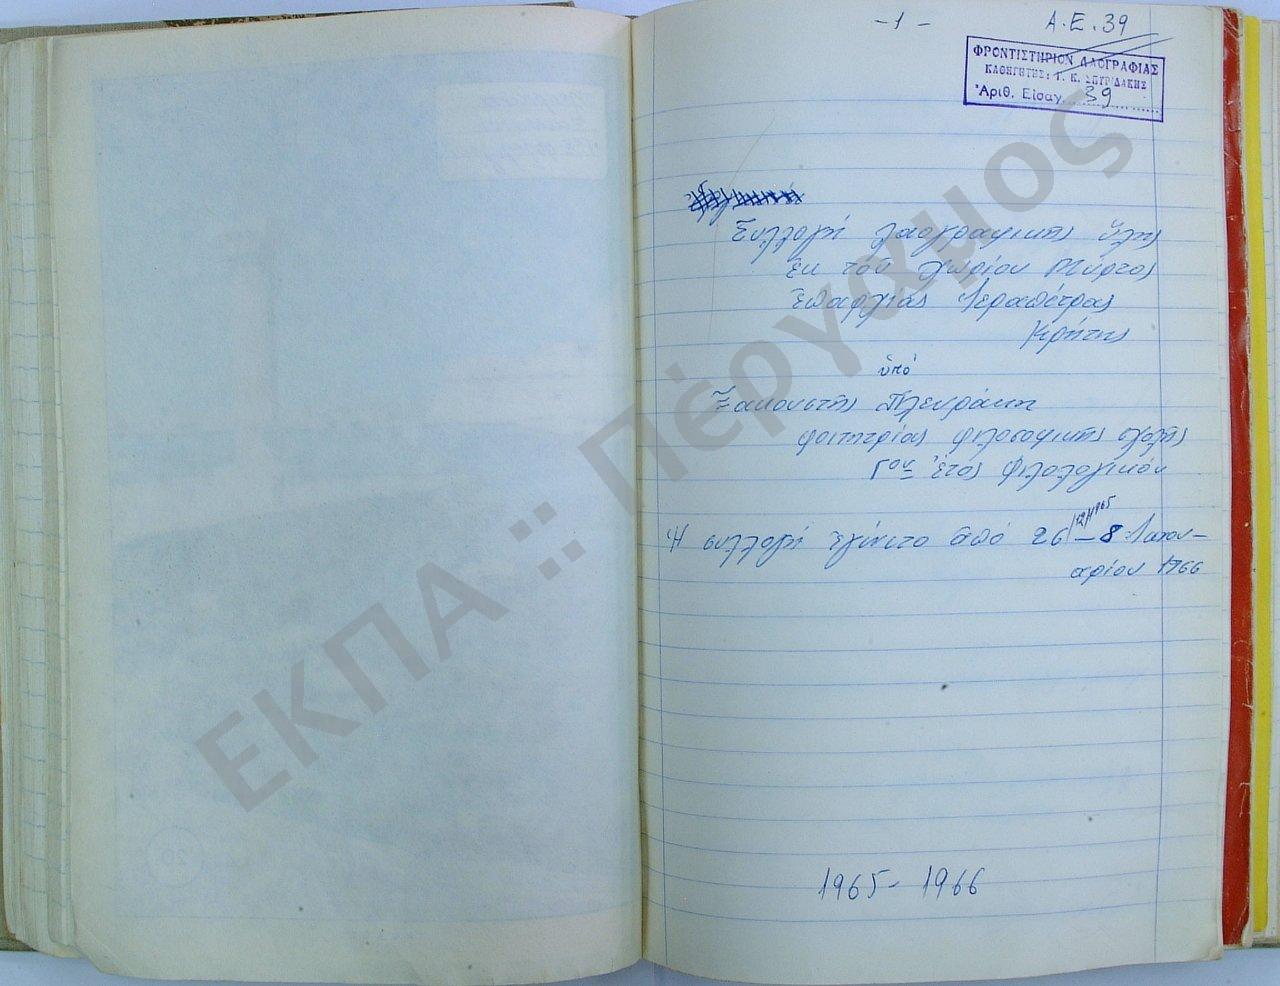 -1-
Α.Ε. 39
ΦΡΟΝΤΙΣΤΗΡΙΟΝ ΛΑΟΓΡΑΦΙΑΣ
ΚΑΘΗΓΗΤΗΣ: Γ. Κ. ΣΠΥΡΙΔΑΚΗΣ
Ἀριθ. Εἰσαγ. 39
Συλλογή λαογραφικῆς ὕλης
ἐκ τοῦ χωρίου Μύρτος
ἐπαρχίας Ἱεραπέτρας
Κρήτης
ὑπό
Ξακουστῆς Πλευράκη
φοιτητρίας φιλοσοφικῆς σχολῆς
Γον ἔτος Φιλολογικόν
Ἡ συλλογή ἐγίνετο ἀπό 26/12/1965 - 8 Ἰανου-
αρίου 1966
1965 - 1966
ΕΚΠΑ :: Πέργαμος